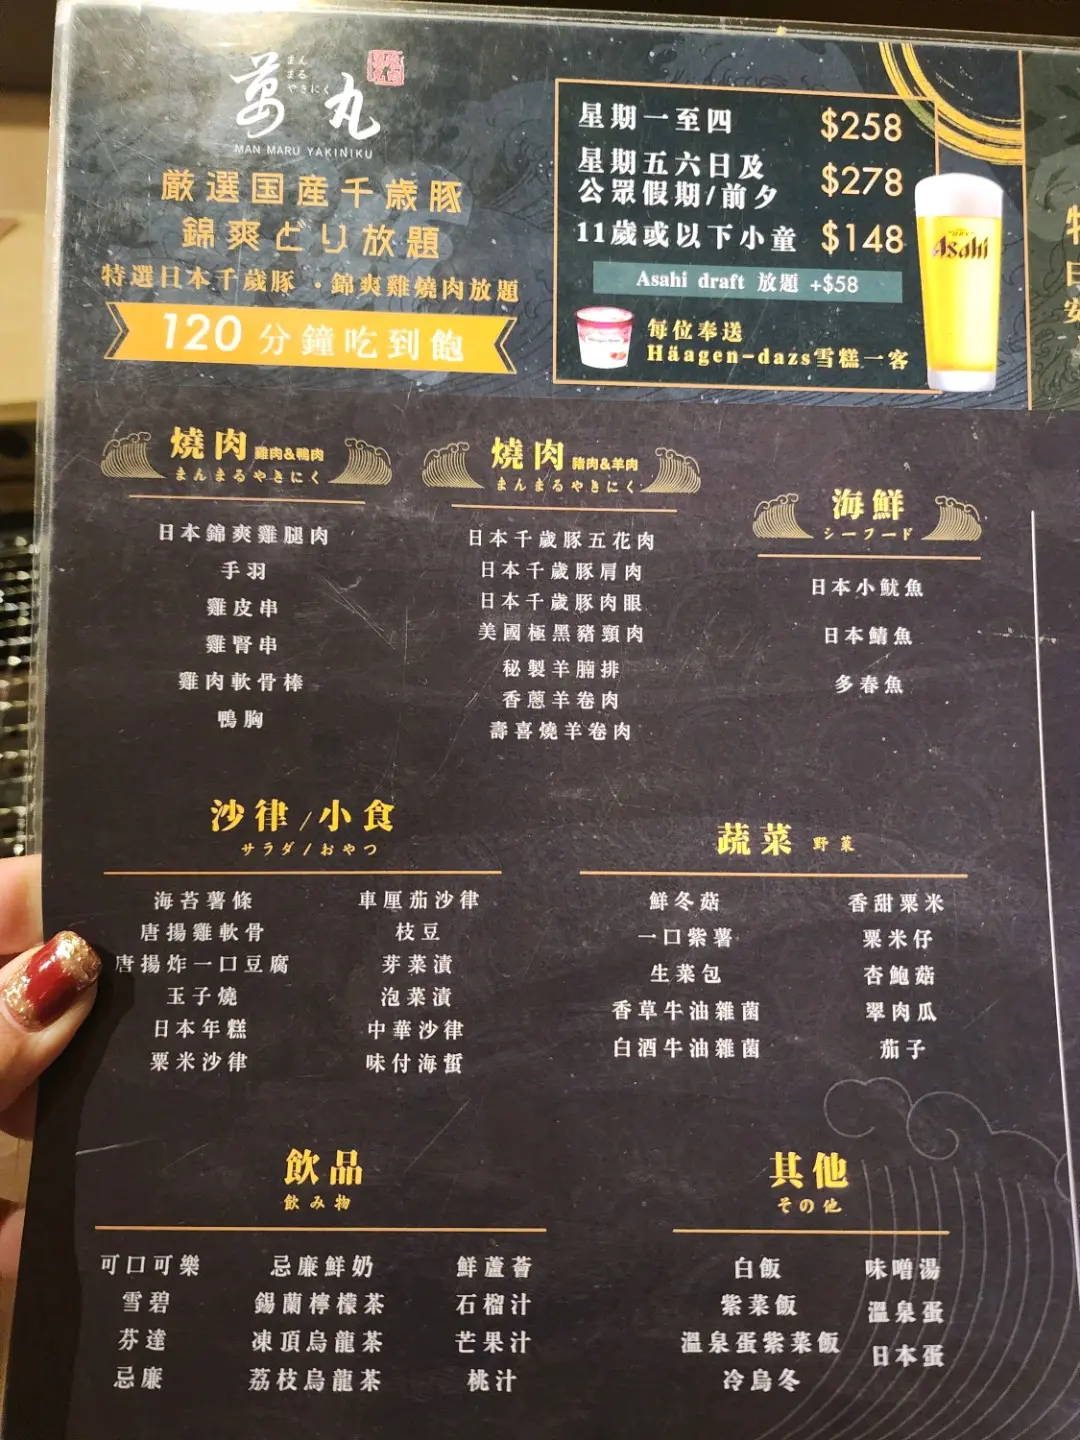 萬丸
まん
まる
やきにく
MAN MARU YAKINIKU
厳選国産千歳豚
錦爽どり放題
特選日本千歲豚・錦爽雞燒肉放題
120分鐘吃到飽
星期一至四 $258
星期五六日及
公眾假期/前夕 $278
11歲或以下小童 $148
Asahi draft 放題 +$58
每位奉送
Häagen-dazs雪糕一客
Asahi
燒肉 雞肉&鴨肉
まんまるやきにく
日本錦爽雞腿肉
手羽
雞皮串
雞腎串
雞肉軟骨棒
鴨胸
燒肉 豬肉&羊肉
まんまるやきにく
日本千歲豚五花肉
日本千歲豚肩肉
日本千歲豚肉眼
美國極黑豬頸肉
秘製羊腩排
香蔥羊卷肉
壽喜燒羊卷肉
海鮮
シーフード
日本小魷魚
日本鯖魚
多春魚
沙律/小食
サラダ/おやつ
海苔薯條
唐揚雞軟骨
唐揚炸一口豆腐
玉子燒
日本年糕
粟米沙律
車厘茄沙律
枝豆
芽菜漬
泡菜漬
中華沙律
味付海蜇
蔬菜 野菜
鮮冬菇
一口紫薯
生菜包
香草牛油雜菌
白酒牛油雜菌
香甜粟米
粟米仔
杏鮑菇
翠肉瓜
茄子
飲品
飲み物
可口可樂
雪碧
芬達
忌廉
忌廉鮮奶
錫蘭檸檬茶
凍頂烏龍茶
荔枝烏龍茶
鮮蘆薈
石榴汁
芒果汁
桃汁
其他
その他
白飯
紫菜飯
溫泉蛋紫菜飯
冷烏冬
味噌湯
溫泉蛋
日本蛋